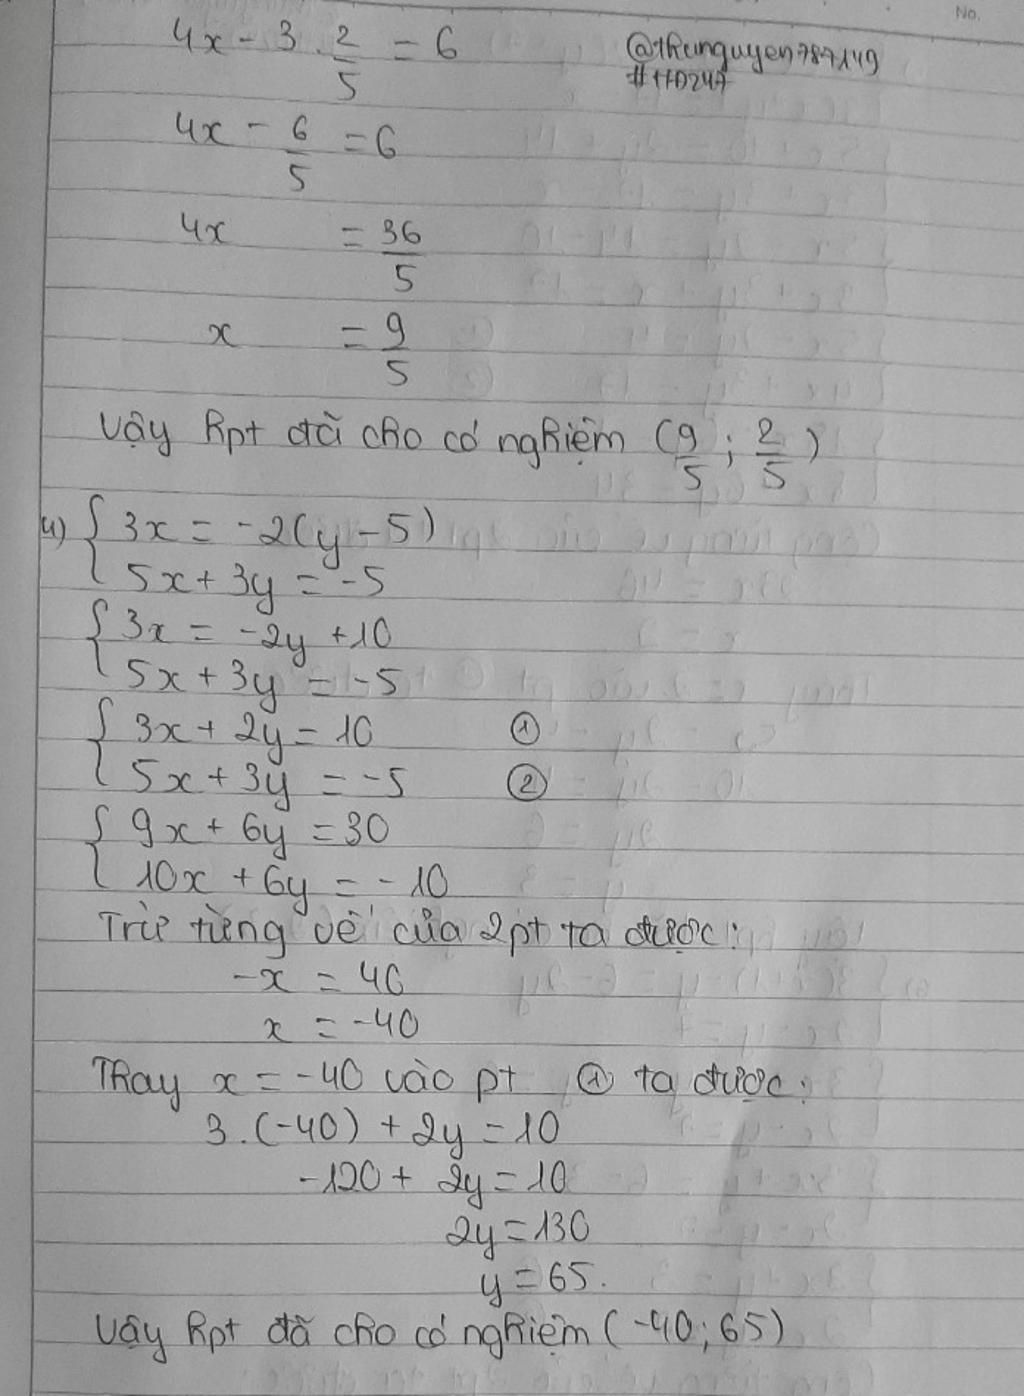 No.
4x - 3 . 2/5 = 6
@thunguyen787149
#HD247
4x - 6/5 = 6
4x = 36/5
x = 9/5
Vậy hpt đã cho có nghiệm (9/5 ; 2/5)
4) { 3x = -2(y - 5)
5x + 3y = -5
{ 3x = -2y + 10
5x + 3y = -5
{ 3x + 2y = 10 ①
5x + 3y = -5 ②
{ 9x + 6y = 30
10x + 6y = -10
Trừ từng vế của 2pt ta được:
-x = 40
x = -40
Thay x = -40 vào pt ① ta được:
3.(-40) + 2y = 10
-120 + 2y = 10
2y = 130
y = 65.
Vậy hpt đã cho có nghiệm (-40; 65)